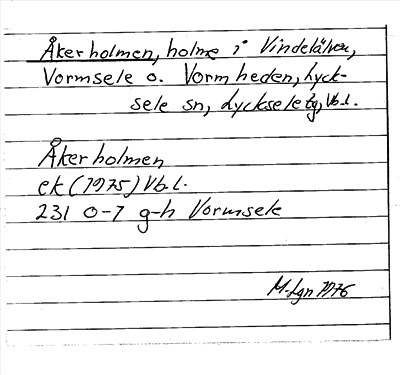 Åkerholmen, holme i Vindelälven,
Vormsele o. Vormheden, Lyck-
sele sn, Lycksele tg, Vb.l.
Åkerholmen
ek (1975) Vb.l.
231 0-1 g-h Vormsele
M-Lgn 1976